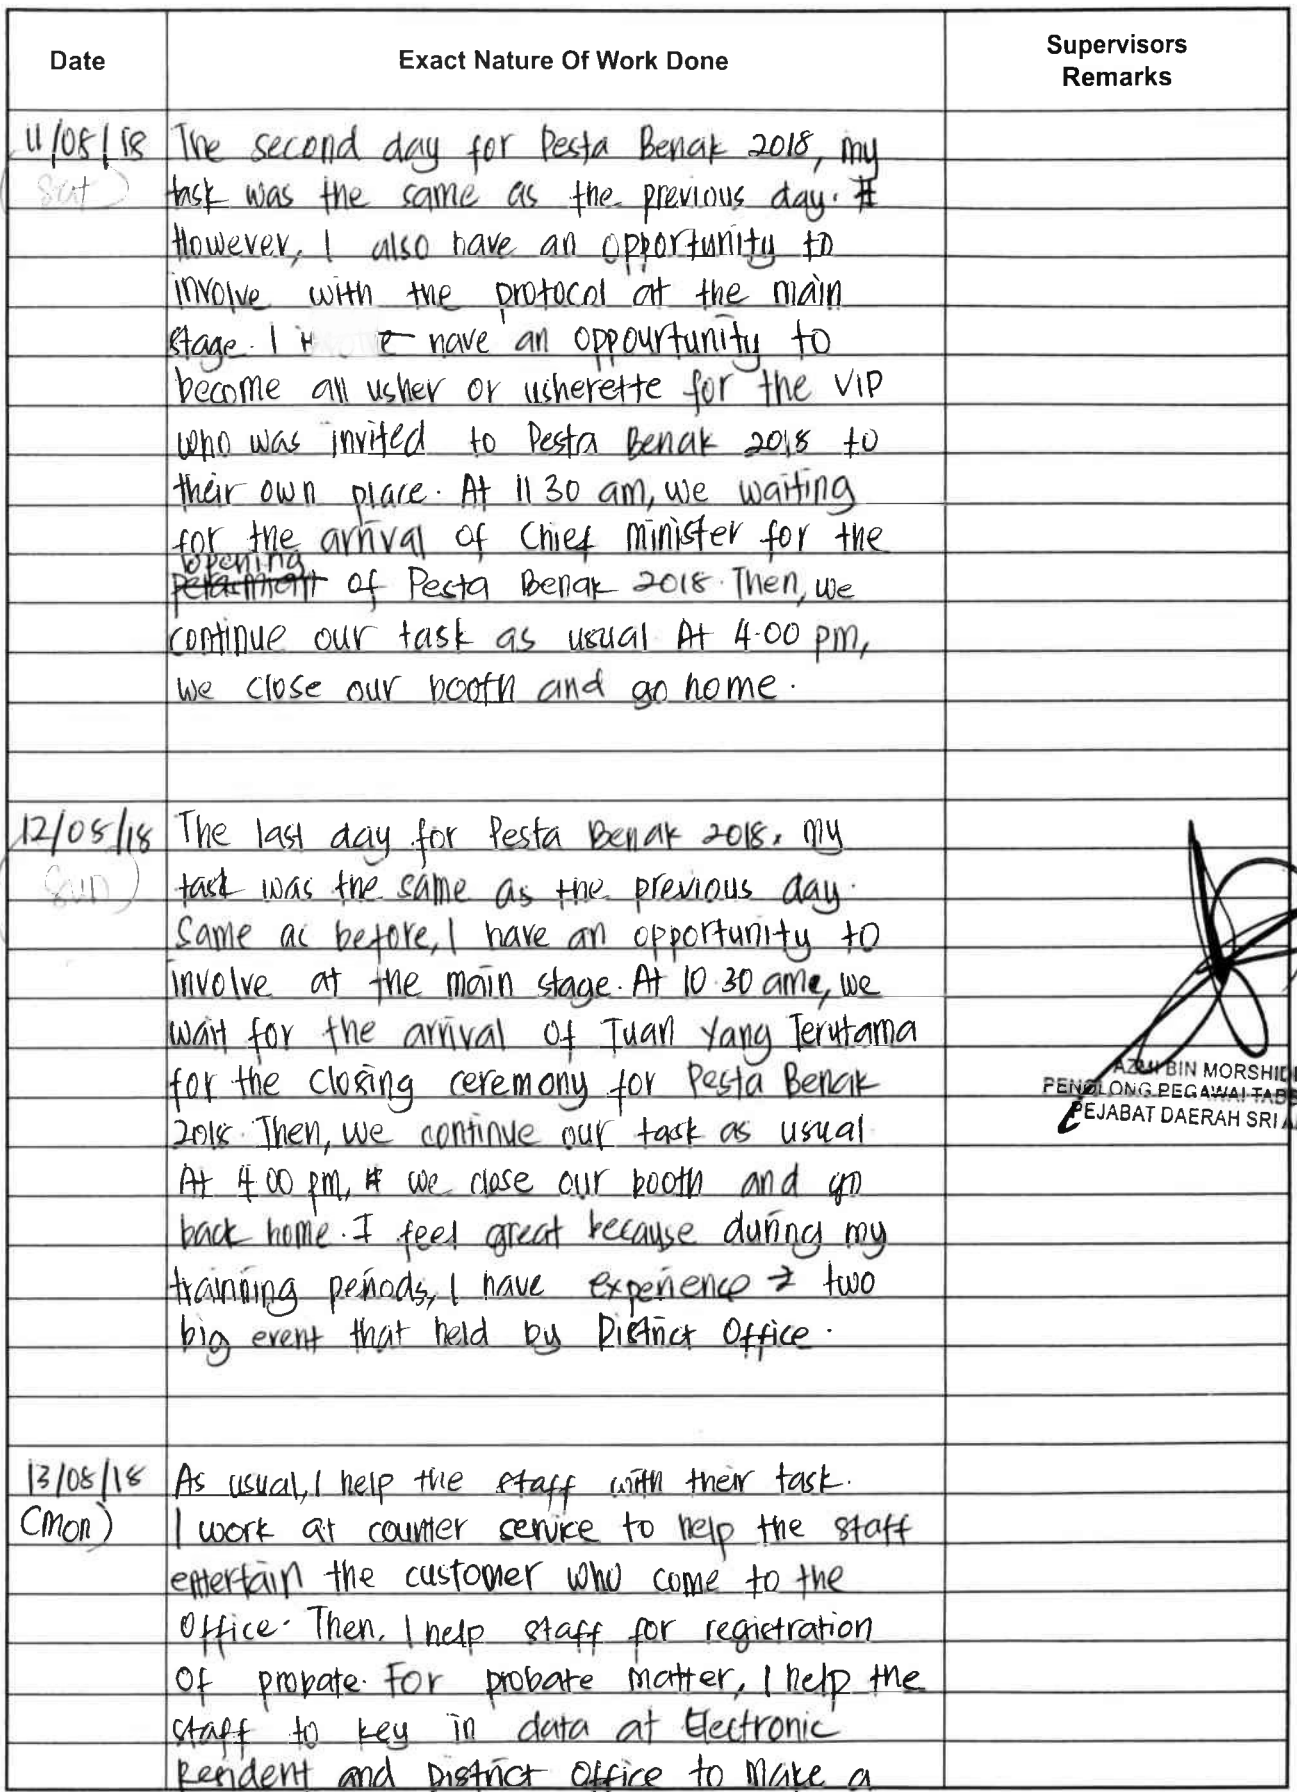 Date Exact Nature Of Work Done Supervisors
Remarks
11/08/18 The second day for Pesta Benak 2018, my
(Sat) task was the same as the previous day.
However, I also have an opportunity to
involve with the protocol at the main
stage. I have an oppourtunity to
become an usher or usherette for the VIP
who was invited to Pesta Benak 2018 to
their own place. At 11 30 am, we waiting
for the arrival of Chief minister for the
opening
of Pesta Benak 2018. Then, we
continue our task as usual At 4.00 pm,
we close our booth and go home.
12/08/18 The last day for Pesta Benak 2018, my
(Sun) task was the same as the previous day.
Same as before, I have an opportunity to
involve at the main stage. At 10.30 ame, we
wait for the arrival of Tuan Yang Terutama
for the closing ceremony for Pesta Benak
2018. Then, we continue our task as usual
At 4 00 pm, we close our booth and go
back home. I feel great because during my
trainning periods, I have experience two
big event that held by District Office.
AZMI BIN MORSHIDI
PENOLONG PEGAWAI TADB
PEJABAT DAERAH SRI A
13/08/18 As usual, I help the staff with their task.
(Mon) I work at counter service to help the staff
entertain the customer who come to the
Office. Then, I help staff for registration
of probate. For probate matter, I help the
staff to key in data at Electronic
Rendent and District Office to make a